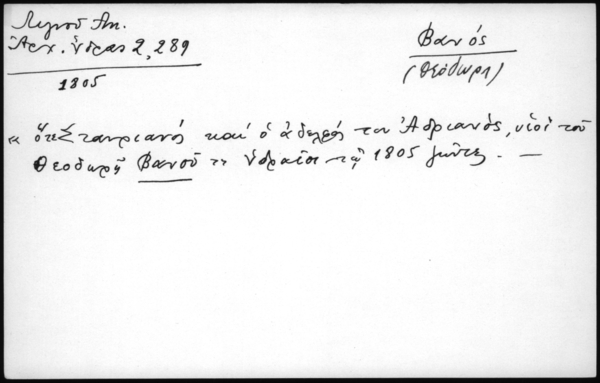 Λιγνοῦ Ἀν.
Ἀρχ. Ὕδρας 2, 289
1805
Βανός
(Θεόδωρη)
« ὅτι Σταυριανός καί ὁ ἀδελφός του Ἀδριανός, υἱοί τοῦ
Θεοδωρῆ Βανοῦ Ὑδραῖοι τῷ 1805 —